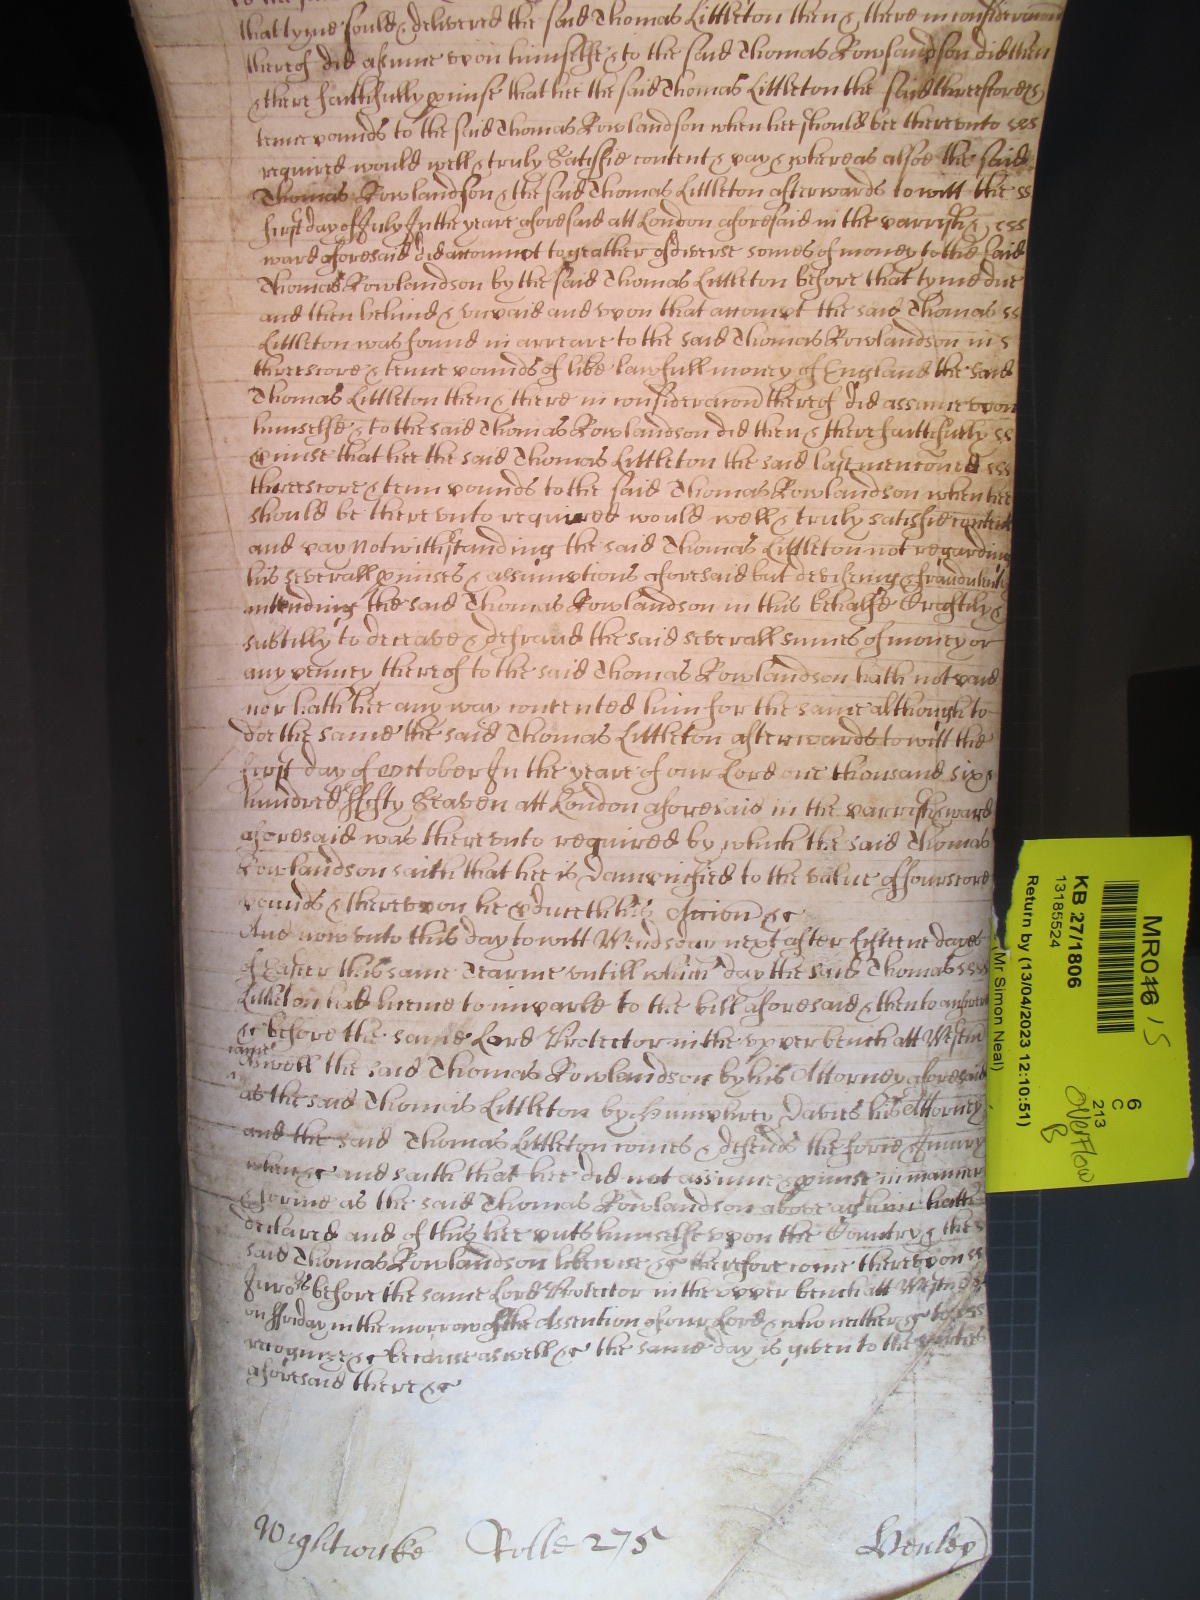 that tyme sould & delivered the said Thomas Littleton then & there in consideracon
thereof did assume upon himselfe & to the said Thomas Rowlandson did then
& there faithfully pmise that hee the said Thomas Littleton the said threescore &
tenne pounds to the said Thomas Rowlandson when hee should bee thereunto
required would well & truly Satisfie content & pay & whereas alsoe the said
Thomas Rowlandson & the said Thomas Littleton afterwards to witt the
first day of July In the yeare aforesaid att London aforesaid in the parrish &
ward aforesaid did accompt togeather of diverse somes of money to the said
Thomas Rowlandson by the said Thomas Littleton before that tyme due
and then behind & unpaid and upon that accompt the said Thomas
Littleton was found in arreare to the said Thomas Rowlandson in
threescore & tenne pounds of like lawfull money of England the said
Thomas Littleton then & there in consideracon thereof did assume upon
himselfe & to the said Thomas Rowlandson did then & there faithfully
pmise that hee the said Thomas Littleton the said last mencioned
threescore & tenn pounds to the said Thomas Rowlandson when hee
should be thereunto required would well & truly satisfie content
and pay Notwithstanding the said Thomas Littleton not regarding
his severall pmises & assumptions aforesaid but deviseing & fraudulently
intending the said Thomas Rowlandson in this behalfe Craftily &
subtilly to deceave & defraud the said severall sumes of money or
any penney thereof to the said Thomas Rowlandson hath not paid
nor hath hee any way contented him for the same although to
doe the same the said Thomas Littleton afterwards to witt the
first day of October In the yeare of our Lord one thousand six
hundred ffifty Seaven att London aforesaid in the parrish & ward
aforesaid was thereunto required by which the said Thomas
Rowlandson saith that hee is Dampnified to the value of fourscore
pounds & thereupon he pduceth his Accion &c
And now unto this day to witt Wendsday next after fifteene dayes
of Easter this same Tearme untill which day the said Thomas
Littleton had licence to imparle to the bill aforesaid & then to answer
&c before the same Lord Protector in the upper bench att Westm
came
Aswell the said Thomas Rowlandson by his Attorney aforesaid
as the said Thomas Littleton by Humphrey Davies his Attorney
and the said Thomas Littleton comes & defends the force & Injury
when &c and saith that hee did not assume & pmise in manner
& forme as the said Thomas Rowlandson above agt him hath
declared and of this hee puts himselfe upon the Country & the
said Thomas Rowlandson likewise &c therefore come thereupon
Jurors before the same Lord Protector in the upper bench att Westm
on ffriday in the morrow of the Assention of our Lord & who neither &c to
recognize &c because aswell &c the same day is given to the parties
aforesaid there &c
Wightwicke Rolle 275 Henley
MR046 15
KB 27/1806
13185524
Return by (13/04/2023 12:10:51)
(Mr Simon Neal)
6
C
213
Overflow
B